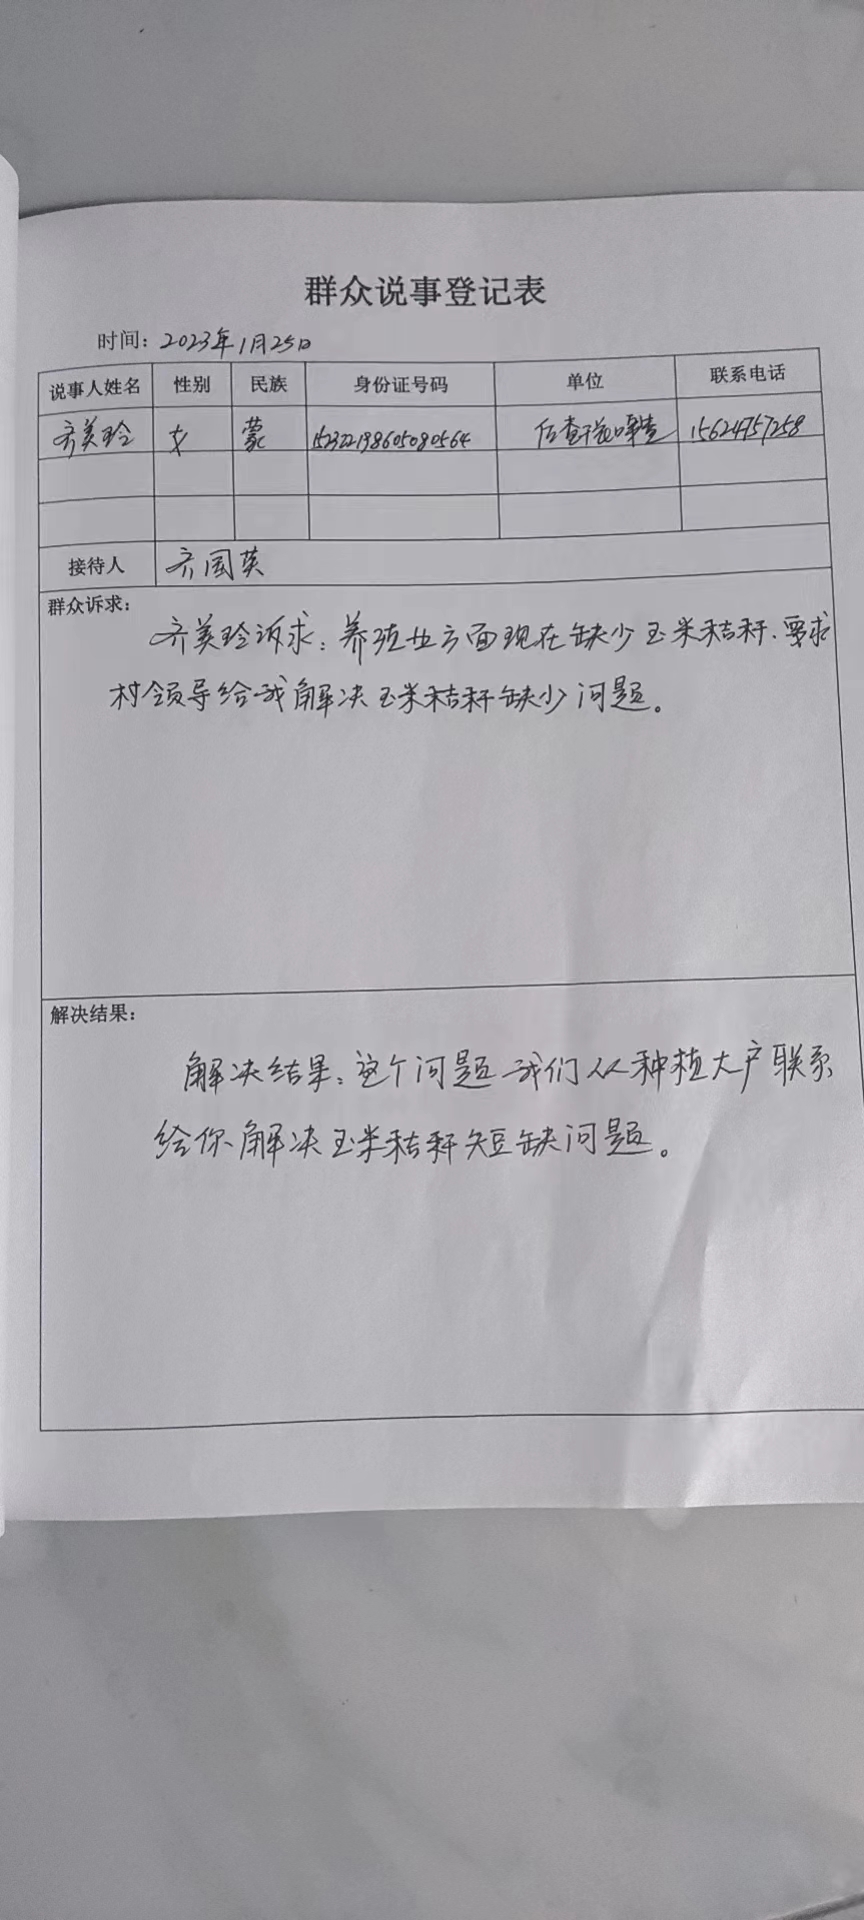 群众说事登记表
时间：2023年1月25日
说事人姓名 性别 民族 身份证号码 单位 联系电话
齐美玲 女 蒙 152322198605080564 15624757258
接待人 齐国英
群众诉求：
齐美玲诉求：养殖业方面现在缺少玉米秸秆.要求
村领导给我解决玉米秸秆缺少问题。
解决结果：
解决结果：这个问题我们从种植大户联系
给你解决玉米秸秆短缺问题。